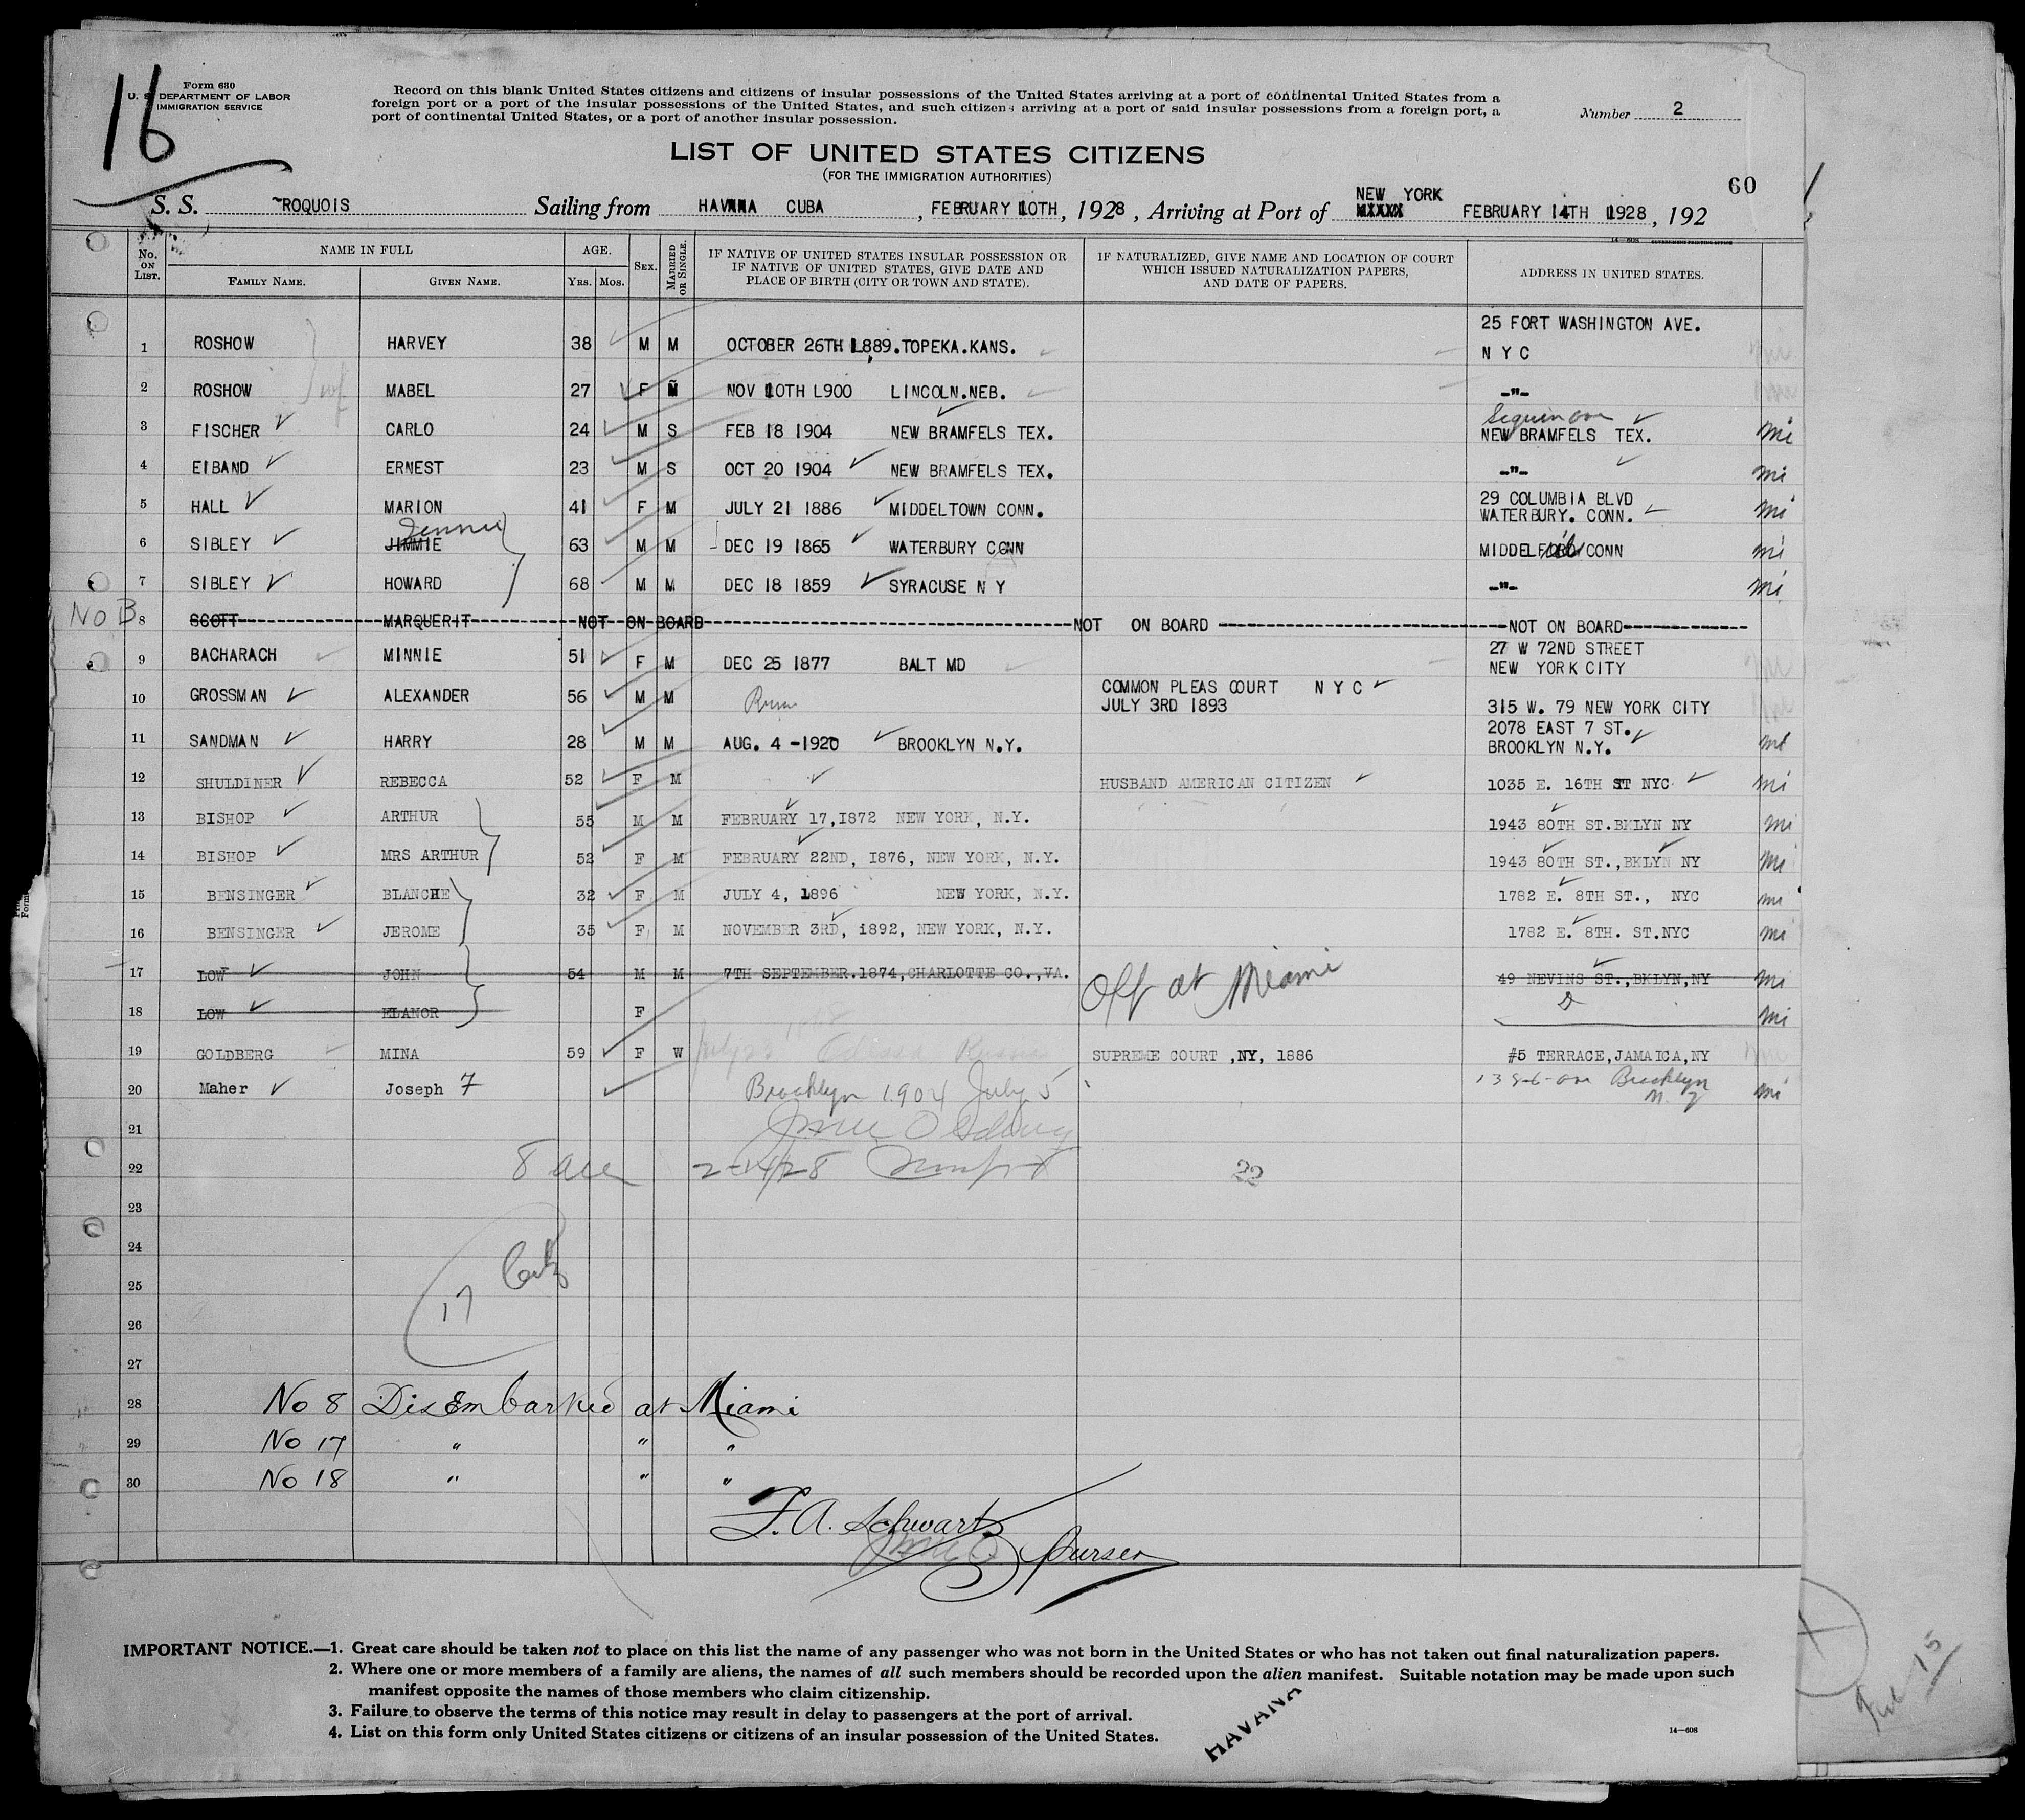 16
Form 630
U. S. DEPARTMENT OF LABOR
IMMIGRATION SERVICE
Record on this blank United States citizens and citizens of insular possessions of the United States arriving at a port of continental United States from a
foreign port or a port of the insular possessions of the United States, and such citizens arriving at a port of said insular possessions from a foreign port, a
port of continental United States, or a port of another insular possession.
Number 2
LIST OF UNITED STATES CITIZENS
(FOR THE IMMIGRATION AUTHORITIES)
60
S. S. ROQUOIS Sailing from HAVANA CUBA, FEBRUARY 10TH, 1928, Arriving at Port of NEW YORK FEBRUARY 14TH 1928, 192
14—608 GOVERNMENT PRINTING OFFICE
No. ON LIST. NAME IN FULL FAMILY NAME. GIVEN NAME. AGE. YRS. MOS. SEX. MARRIED OR SINGLE. IF NATIVE OF UNITED STATES INSULAR POSSESSION OR IF NATIVE OF UNITED STATES, GIVE DATE AND PLACE OF BIRTH (CITY OR TOWN AND STATE). IF NATURALIZED, GIVE NAME AND LOCATION OF COURT WHICH ISSUED NATURALIZATION PAPERS, AND DATE OF PAPERS. ADDRESS IN UNITED STATES.
1 ROSHOW HARVEY 38 M M OCTOBER 26TH L889.TOPEKA.KANS. 25 FORT WASHINGTON AVE. N Y C
2 ROSHOW wf MABEL 27 F M NOV 10TH L900 LINCOLN.NEB. -"-
3 FISCHER CARLO 24 M S FEB 18 1904 NEW BRAMFELS TEX. Seguin ave NEW BRAMFELS TEX. mi
4 EIBAND ERNEST 23 M S OCT 20 1904 NEW BRAMFELS TEX. -"- mi
5 HALL MARION 41 F M JULY 21 1886 MIDDELTOWN CONN. 29 COLUMBIA BLVD WATERBURY. CONN. mi
6 SIBLEY JIMMIE Jennie 63 M M DEC 19 1865 WATERBURY CONN MIDDELFORD CONN mi
7 SIBLEY HOWARD 68 M M DEC 18 1859 SYRACUSE N Y -"- mi
No B 8 SCOTT MARQUERIT NOT ON BOARD NOT ON BOARD NOT ON BOARD
9 BACHARACH MINNIE 51 F M DEC 25 1877 BALT MD 27 W 72ND STREET NEW YORK CITY
10 GROSSMAN ALEXANDER 56 M M COMMON PLEAS COURT N Y C JULY 3RD 1893 315 W. 79 NEW YORK CITY
11 SANDMAN HARRY 28 M M AUG. 4 -1920 BROOKLYN N.Y. 2078 EAST 7 ST. BROOKLYN N.Y. mi
12 SHULDINER REBECCA 52 F M HUSBAND AMERICAN CITIZEN 1035 E. 16TH ST NYC mi
13 BISHOP ARTHUR 55 M M FEBRUARY 17,1872 NEW YORK, N.Y. 1943 80TH ST.BKLYN NY mi
14 BISHOP MRS ARTHUR 52 F M FEBRUARY 22ND, 1876, NEW YORK, N.Y. 1943 80TH ST.,BKLYN NY mi
15 BENSINGER BLANCHE 32 F M JULY 4, 1896 NEW YORK, N.Y. 1782 E. 8TH ST., NYC mi
16 BENSINGER JEROME 35 F M NOVEMBER 3RD, 1892, NEW YORK, N.Y. 1782 E. 8TH. ST.NYC mi
17 LOW JOHN 54 M M 7TH SEPTEMBER.1874,CHARLOTTE CO.,VA. Off at Miami 49 NEVINS ST.,BKLYN,NY mi
18 LOW ELANOR F mi
19 GOLDBERG MINA 59 F W July 23 1868 Russia SUPREME COURT ,NY, 1886 #5 TERRACE,JAMAICA,NY
20 Maher Joseph F Brooklyn 1904 July 5 Brooklyn N. Y mi
21
22 2-14/28 22
23
24
25 17
26
27
28 No 8 Disembarked at Miami
29 No 17 " " "
30 No 18 " " "
F. A. Schwartz
Purser
IMPORTANT NOTICE.—1. Great care should be taken not to place on this list the name of any passenger who was not born in the United States or who has not taken out final naturalization papers.
2. Where one or more members of a family are aliens, the names of all such members should be recorded upon the alien manifest. Suitable notation may be made upon such
manifest opposite the names of those members who claim citizenship.
3. Failure to observe the terms of this notice may result in delay to passengers at the port of arrival.
4. List on this form only United States citizens or citizens of an insular possession of the United States.
HAVANA
14—608
Feb 15